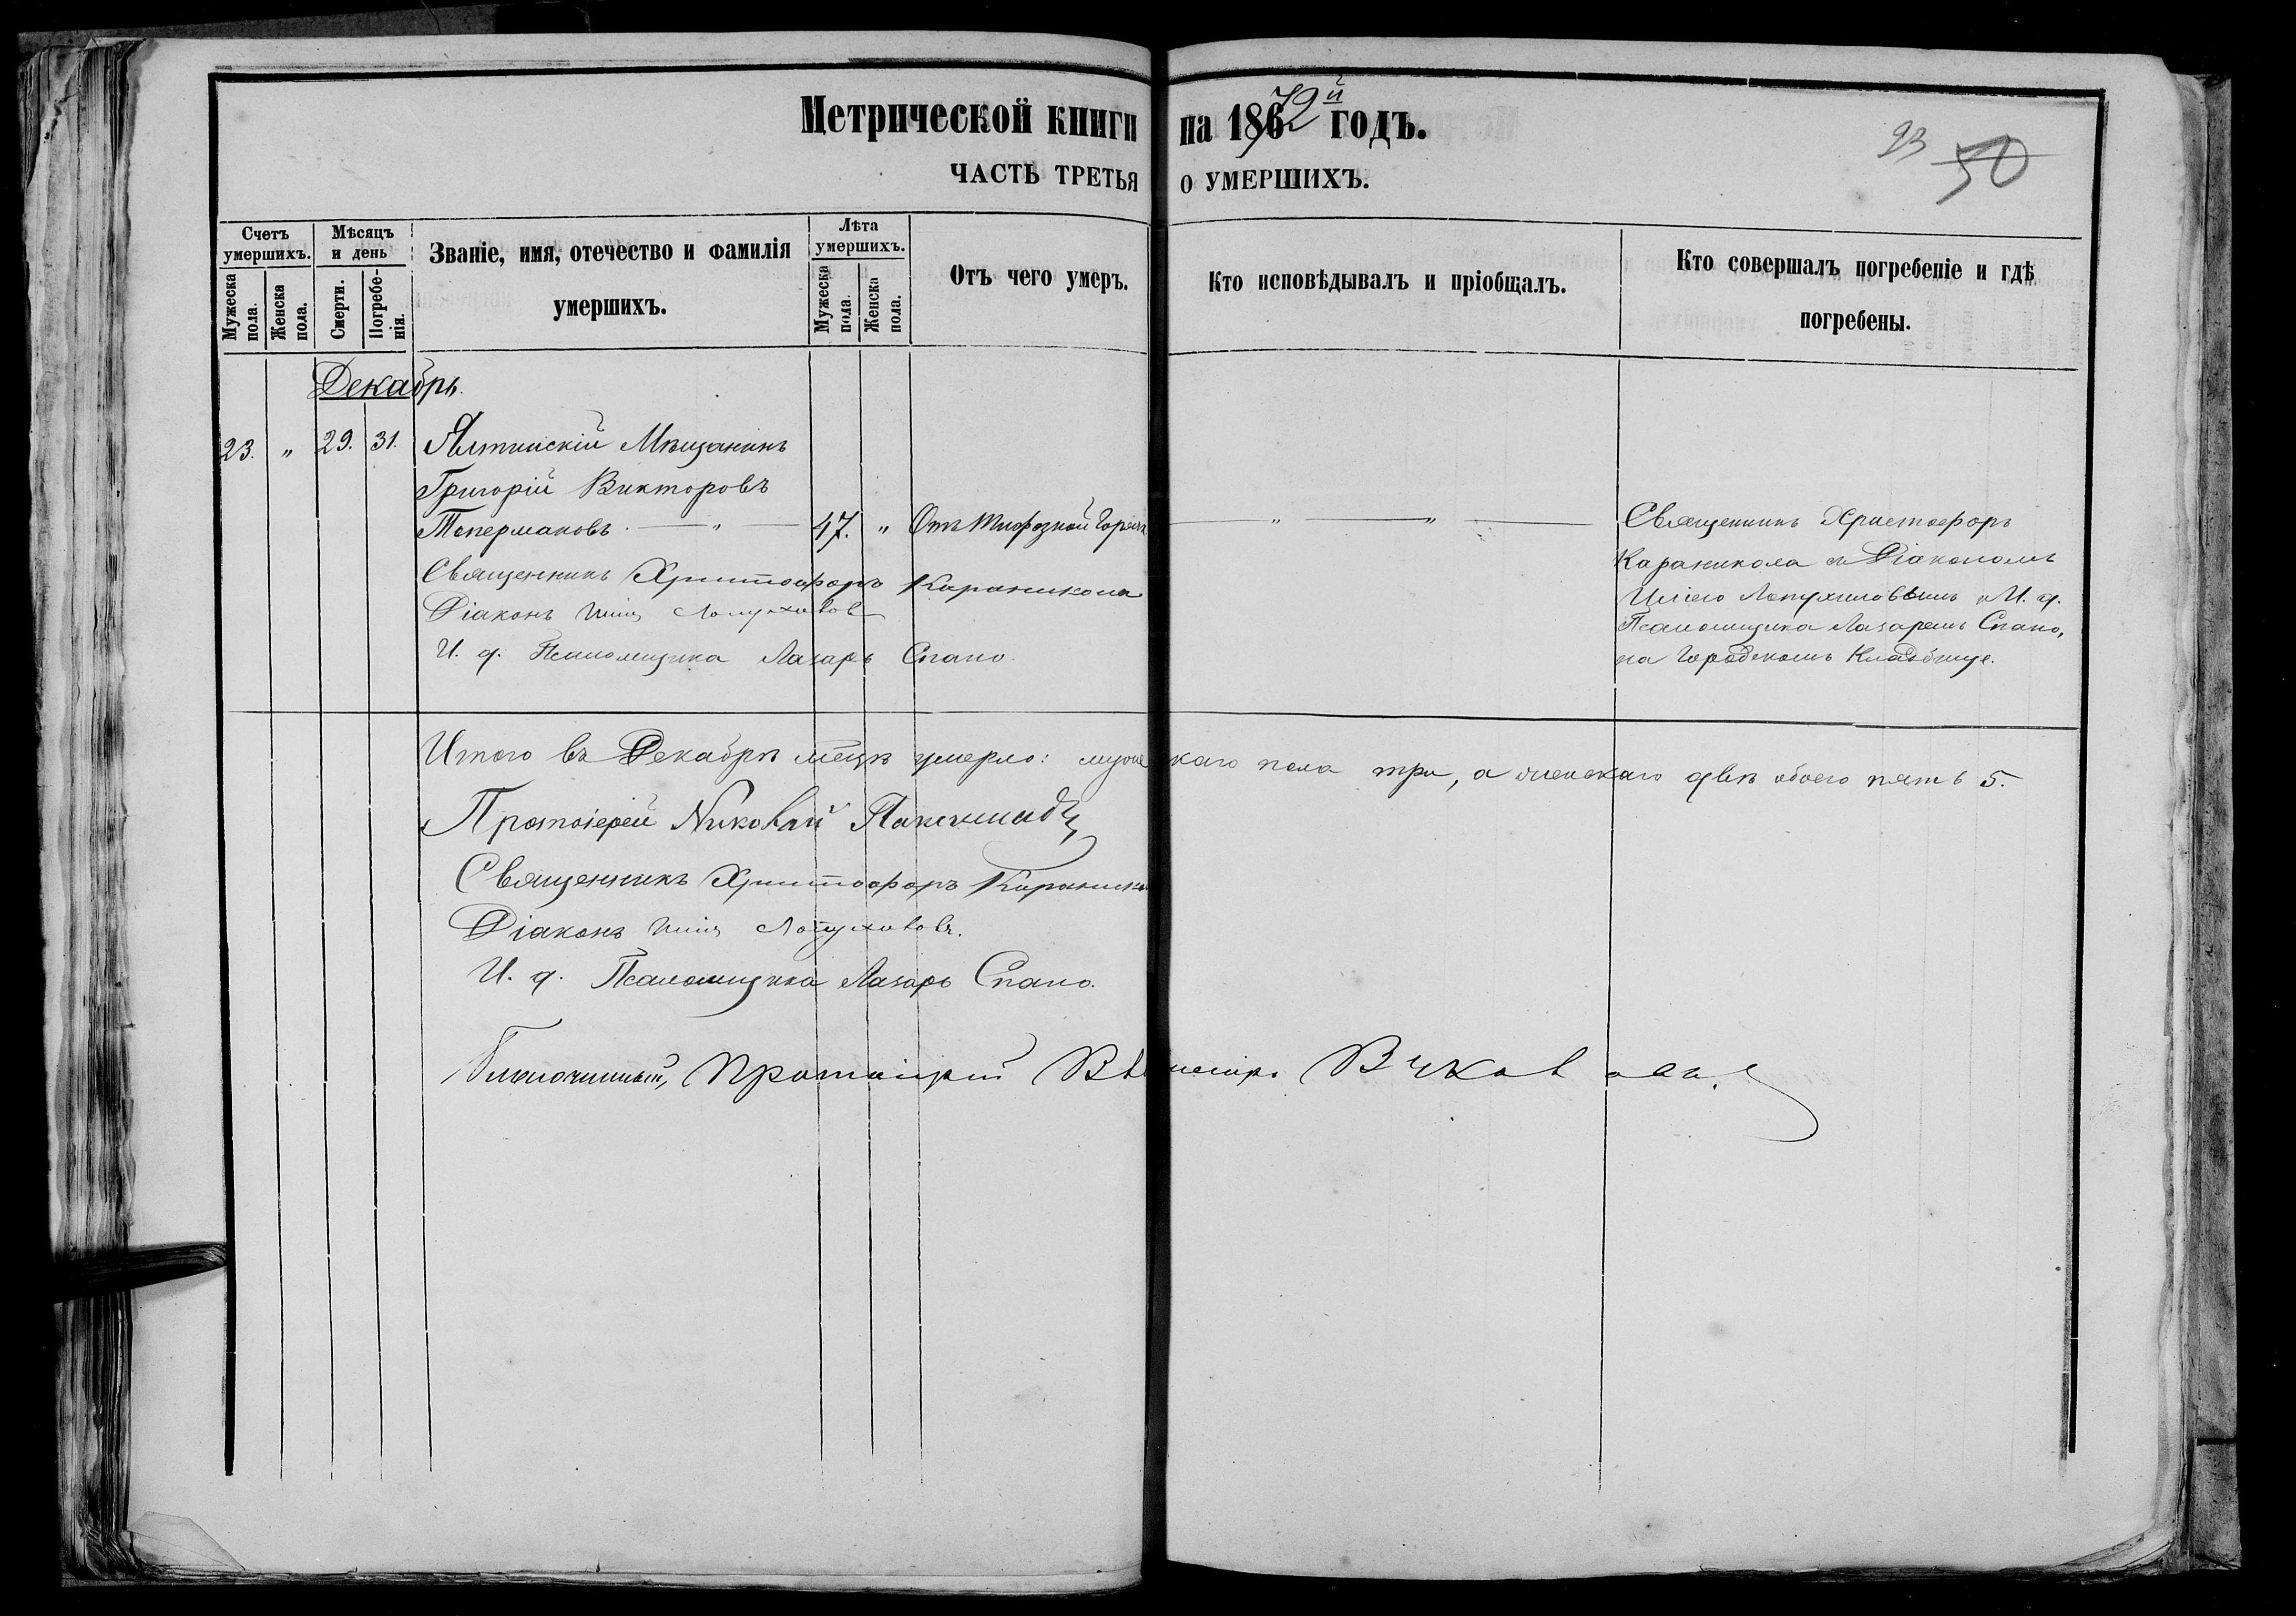 Метрической книги на 1872й годъ.
93 50
ЧАСТЬ ТРЕТЬЯ О УМЕРШИХЪ.
Счетъ умершихъ.
Мужеска пола.
Женска пола.
Мѣсяцъ и день
Смерти.
Погребенія.
Званіе, имя, отечество и фамилія
умершихъ.
Лѣта умершихъ.
Мужеска пола.
Женска пола.
Отъ чего умеръ.
Кто исповѣдывалъ и пріобщалъ.
Кто совершалъ погребеніе и гдѣ
погребены.
Декабрь.
23. " 29. 31. Ялтинскій Мѣщанинъ
Григорій Викторовъ
Топермановъ. — " — 47. " Отъ Тифозной Горяч — " — " —
Священникъ Христофоръ Караникола
Діаконъ Илія
И. д. Псаломщика Лазарь Спано.
Священникъ Христофоръ
Караникола съ Діакономъ
Иліею Лопухиловымъ и И. д.
Псаломщика Лазаремъ Спано,
на Городскомъ Кладбище.
Итого въ Декабрѣ мѣцѣ умерло: мужескаго пола три, а женскаго двѣ обоего пять 5.
Протоіерей Николай
Священникъ Христофоръ Караникола
Діаконъ Илія
И. д. Псаломщика Лазарь Спано.
Благочинный, Протоіерей